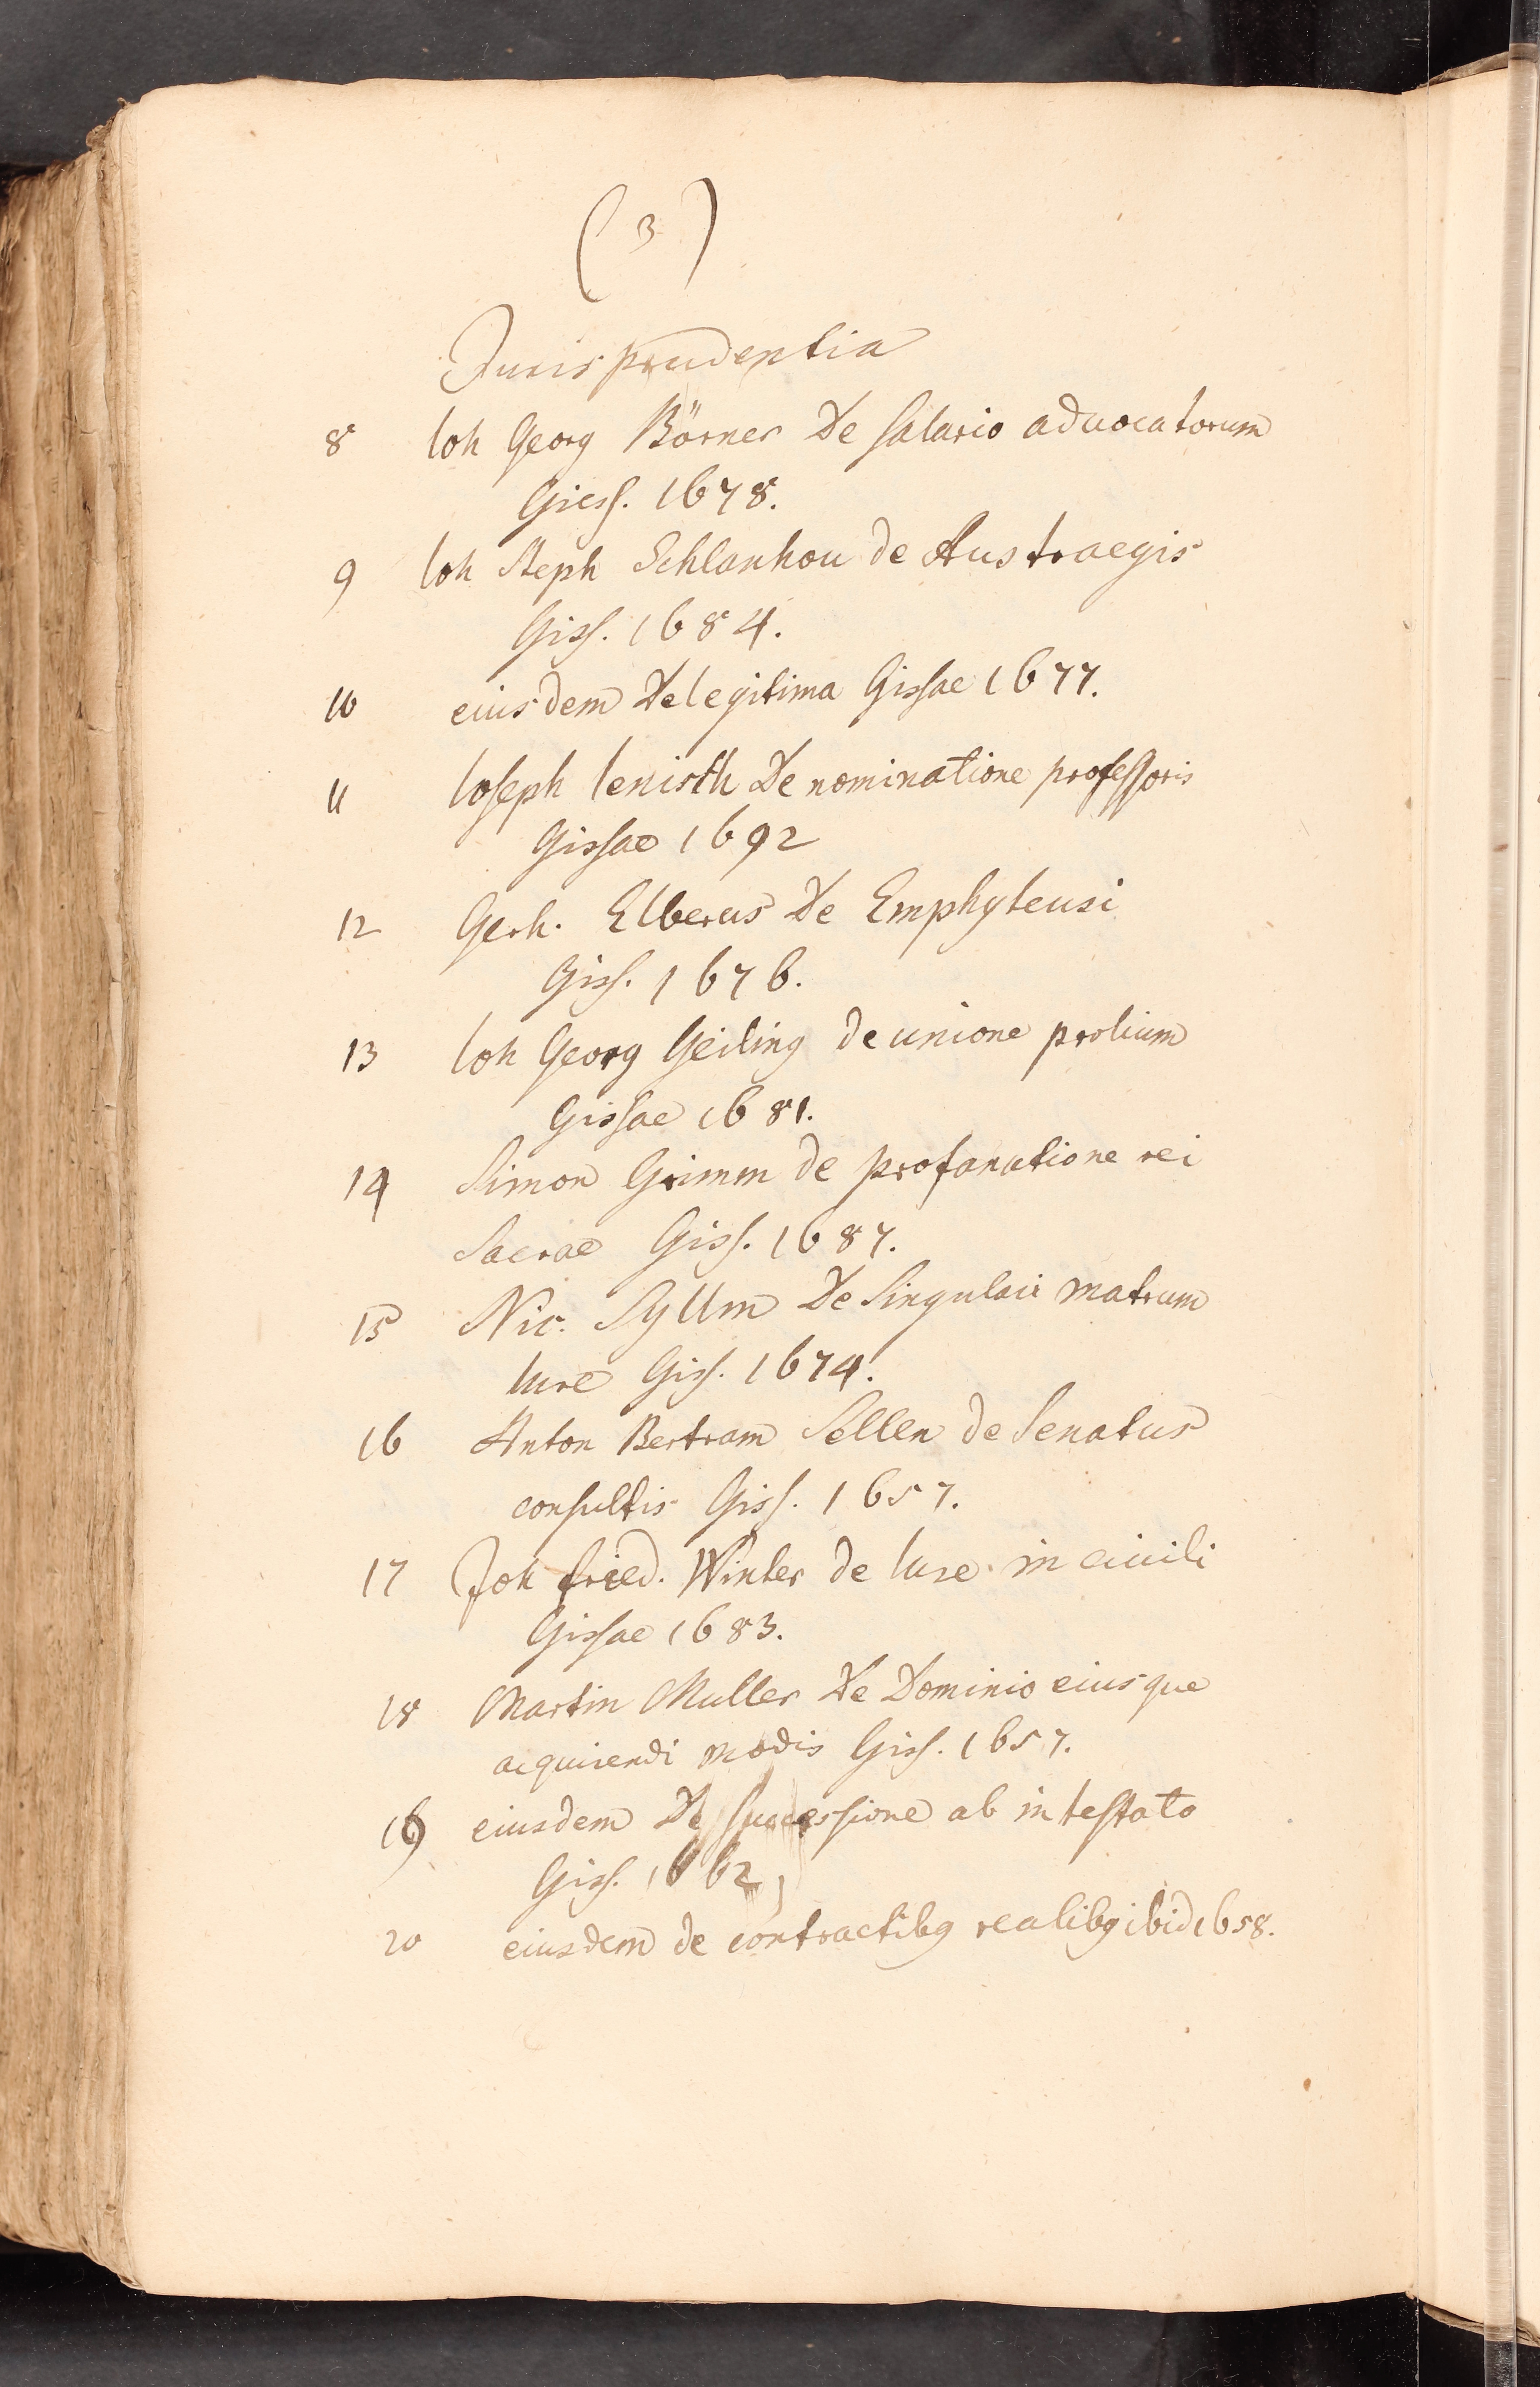 ( 3 )
Jurisprudentia
8 Ioh Georg Börner De Salario aduocatorum
Giess. 1678.
9 Ioh Steph Schlanhou de Austraegis
Giss. 1684.
10 eiusdem De legitima Gissae 1677.
11 Ioseph Ienisth De nominatione professoris
Gissae 1692
12 Gerh. Elberus De Emphyteusi
Giss. 1676.
13 Ioh Georg Geiling de unione prolium
Gissae 1681.
14 Simon Grimm de profanatione rei
Sacrae Giss. 1687.
15 Nic. Syllm De Singulari matrum
Iure Giss. 1674.
16 Anton Bertram Sellen de Senatus
consultis Giss. 1657.
17 Joh fried. Winter de Iure in ciuili
Gissae 1683.
18 Martin Muller De Dominio eiusque
acquirendi modis Giss. 1657.
19 eiusdem De Successione ab intestato
Giss. 1662,
20 eiusdem de contractibg realibg ibid 1658.